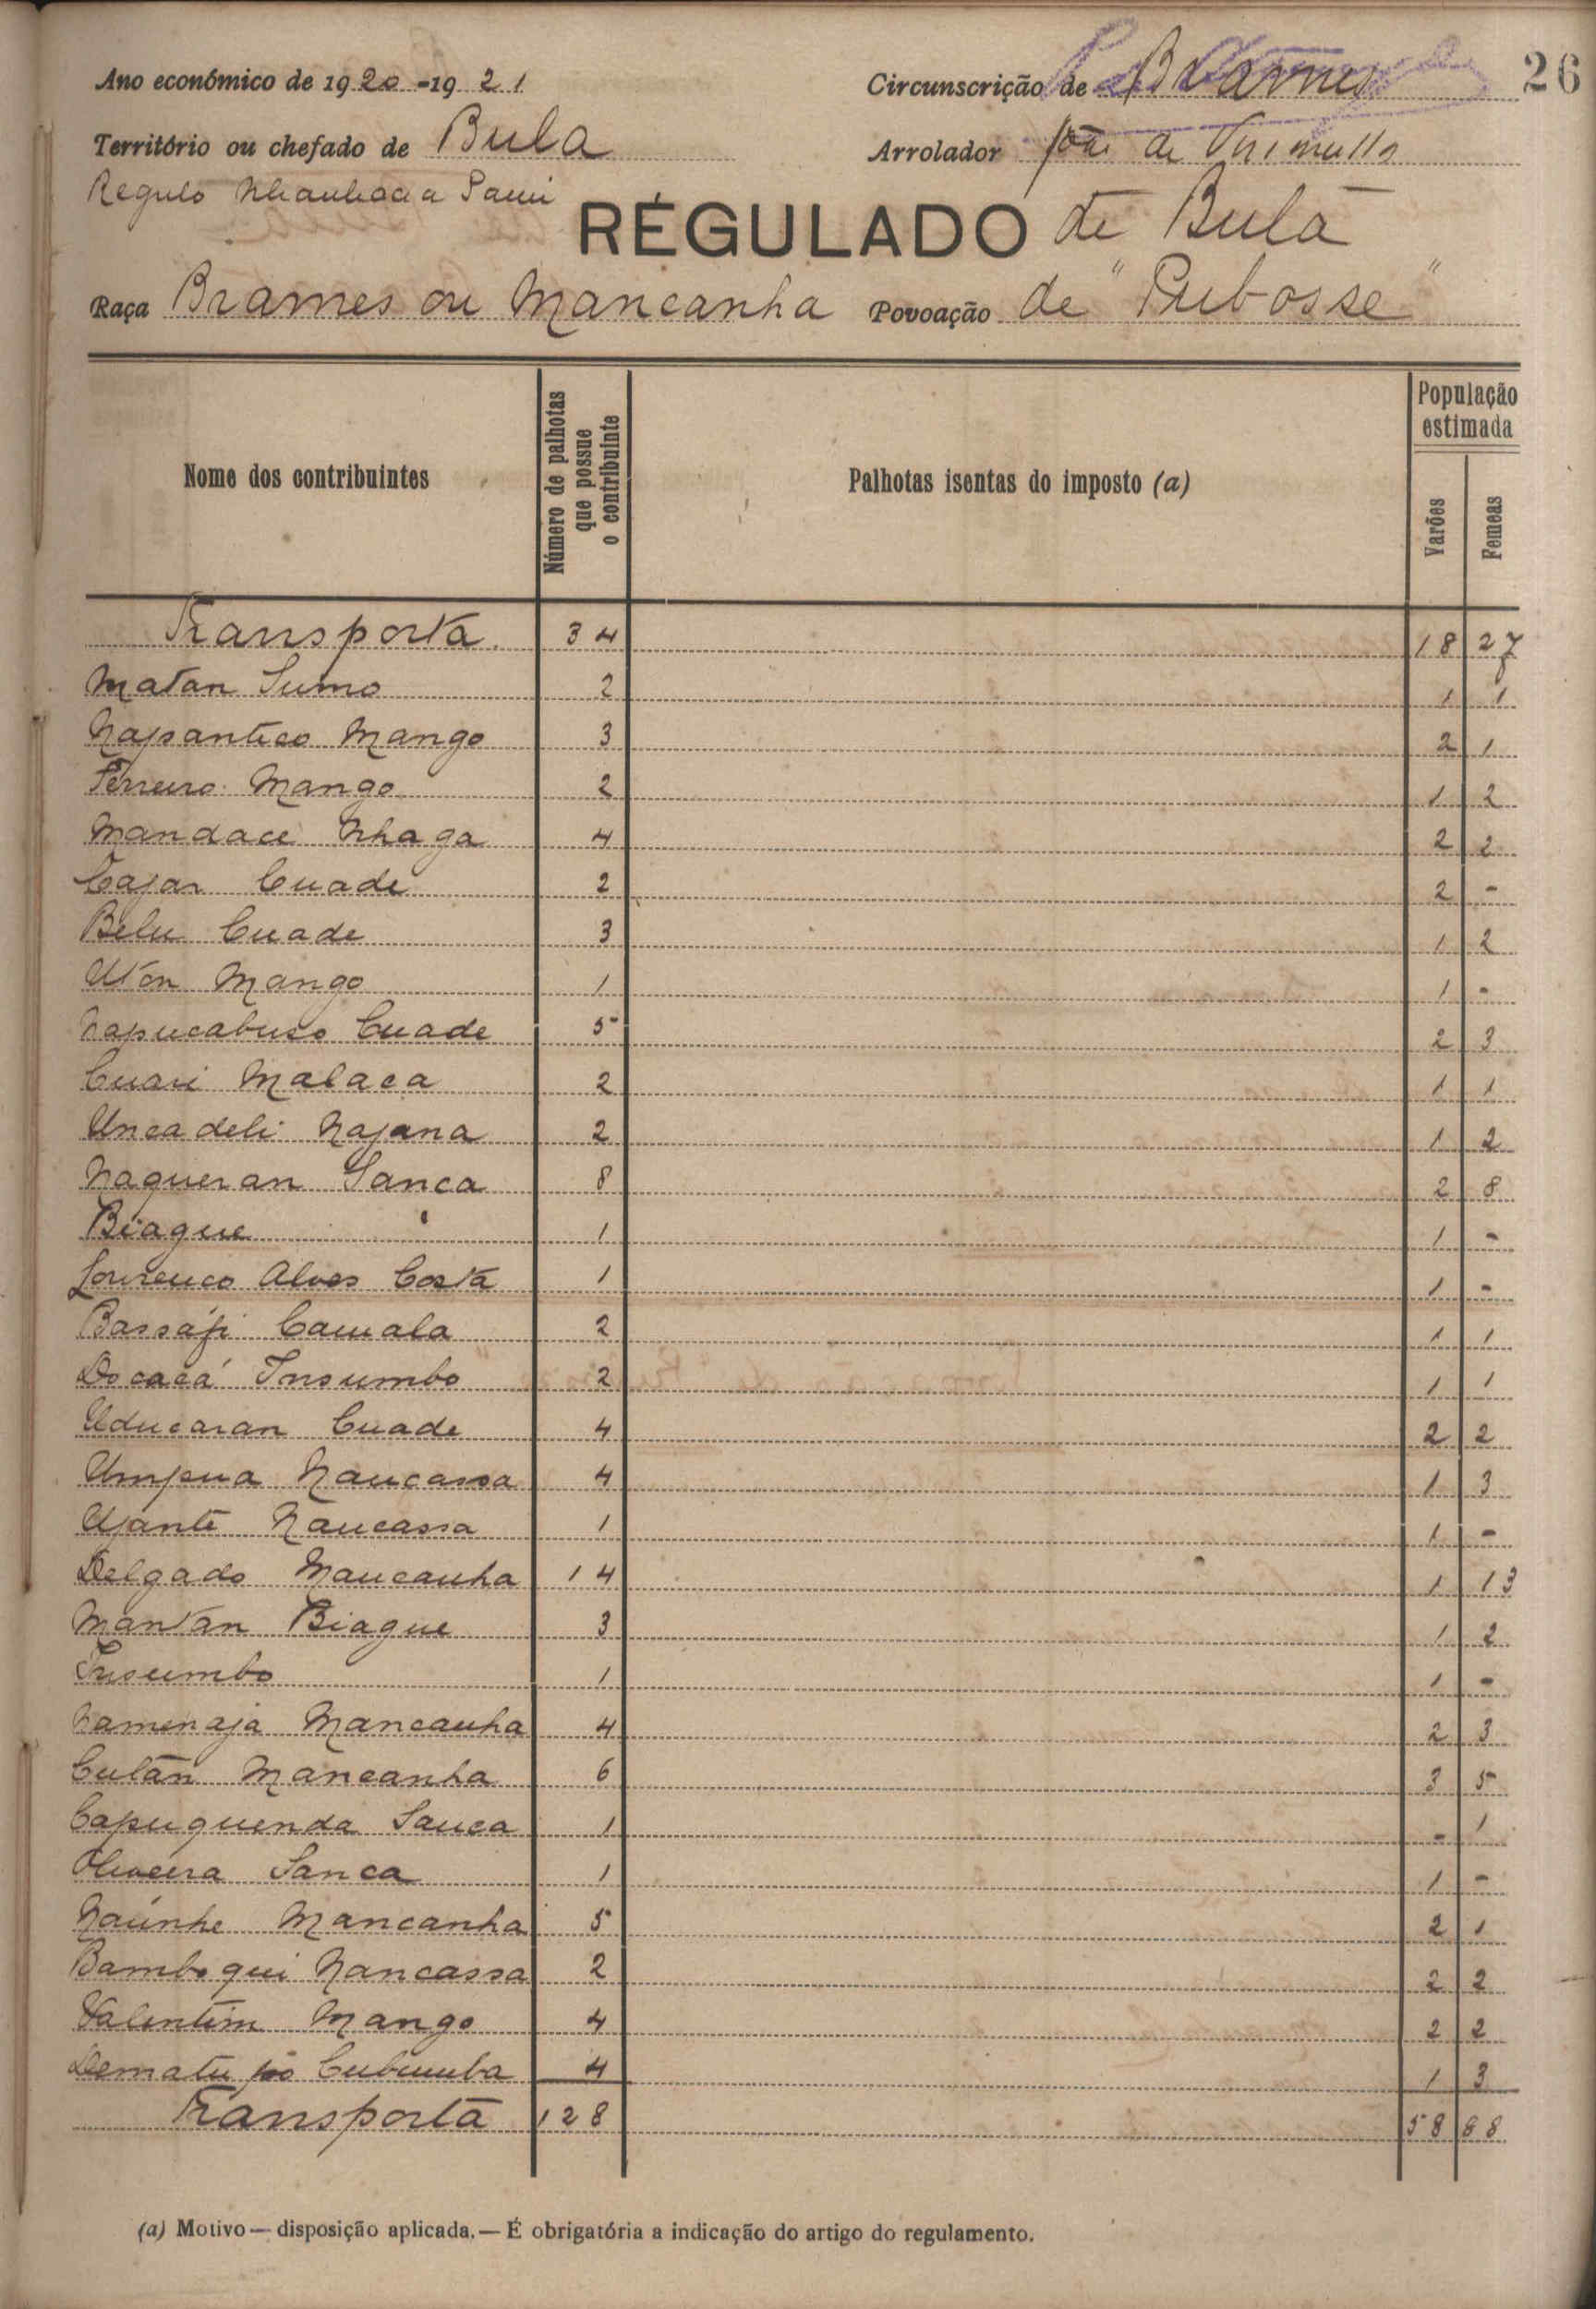 26
Ano económico de 1920-1921 Circunscrição de Brames
Território ou chefado de Bula Arrolador João de
Regulo
RÉGULADO de Bula
Raça Brames ou Mancanha Povoação de "Pubosse"
Nome dos contribuintes Número de palhotas que possue o contribuinte Palhotas isentas do imposto (a) População estimada Varões Femeas
Transporta 34 18 27
Matan Sumo 2 1 1
Napantico Mango 3 2 1
Ferreiro Mango 2 1 2
Mandace Nhaga 4 2 2
Cajar Cuade 2 2 -
Belu Cuade 3 1 2
Utón Mango 1 1 -
Napucabuco Cuade 5 2 3
Cuari Malaca 2 1 1
Uncadeli Najana 2 1 2
Naqueran Sanca 8 2 8
Biague 1 1 -
Lourenco Alves Costa 1 1 -
Bassáfi Camala 2 1 1
Docacá Insumbo 2 1 1
Uducaran Cuade 4 2 2
Umpua Naucassa 4 1 3
Ujante Naucassa 1 1 -
Delgado Mancanha 14 1 13
Mantan Biague 3 1 2
Insumbo 1 1 -
Namenaja Mancanha 4 2 3
Culán Mancanha 6 3 5
Capuquenda Sanca 1 - 1
Oliveira Sanca 1 1 -
Naúnhe Mancanha 5 2 1
Bamboqui Nancassa 2 2 2
Valentim Mango 4 2 2
Dematu 4 1 3
Transporta 128 58 88
(a) Motivo — disposição aplicada. — É obrigatória a indicação do artigo do regulamento.